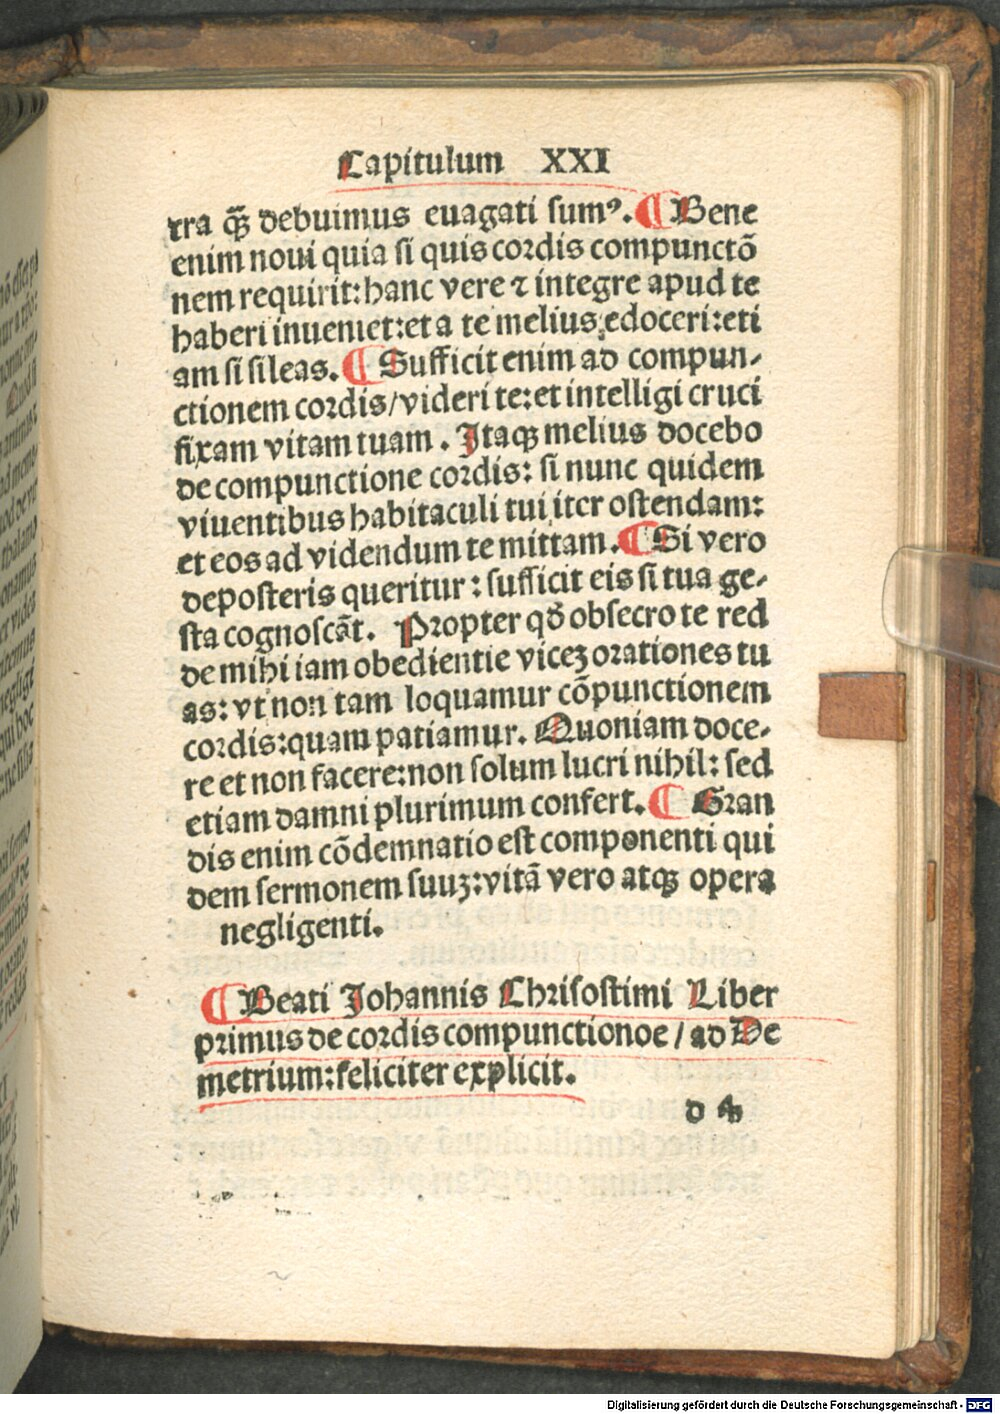 Capitulum XXI
tra q̃ꝫ debuimus euagati sumꝰ. ¶ Bene
enim noui quia si quis cordis compunctõ
nem requirit: hanc vere ⁊ integre apud te
haberi inueniet: et a te melius edoceri: eti
am si sileas. ¶ Sufficit enim ad compun-
ctionem cordis/ videri te: et intelligi cruci
fixam vitam tuam. Itaqꝫ melius docebo
de compunctione cordis: si nunc quidem
viuentibus habitaculi tui iter ostendam:
et eos ad videndum te mittam. ¶ Si vero
deposteris queritur: sufficit eis si tua ge-
sta cognoscãt. Propter qđ obsecro te red
de mihi iam obedientie viceꝫ orationes tu
as: vt non tam loquamur cõpunctionem
cordis: quam patiamur. Quoniam doce-
re et non facere: non solum lucri nihil: sed
etiam damni plurimum confert. ¶ Gran
dis enim cõdemnatio est componenti qui
dem sermonem suuꝫ: vitã vero atqꝫ opera
negligenti.
¶ Beati Johannis Chrisostimi Liber
primus de cordis compunctionoe/ ad De
metrium: feliciter explicit.
d 4
Digitalisierung gefördert durch die Deutsche Forschungsgemeinschaft - DFG